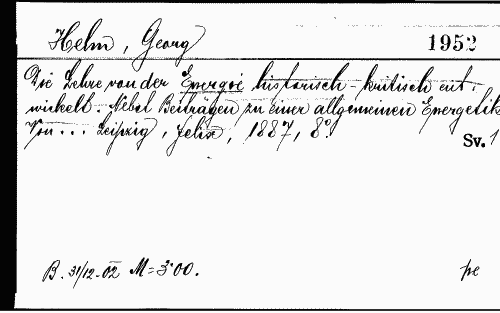 Helm, Georg
1952
Die Lehre von der Energie historisch-kritisch ent-
wickelt. Nebst Beiträgen zu einer allgemeinen Energetik.
Von... Leipzig, Felix, 1887, 8°.
Sv. 1
B. 31/12-02 M=3·00.
pe